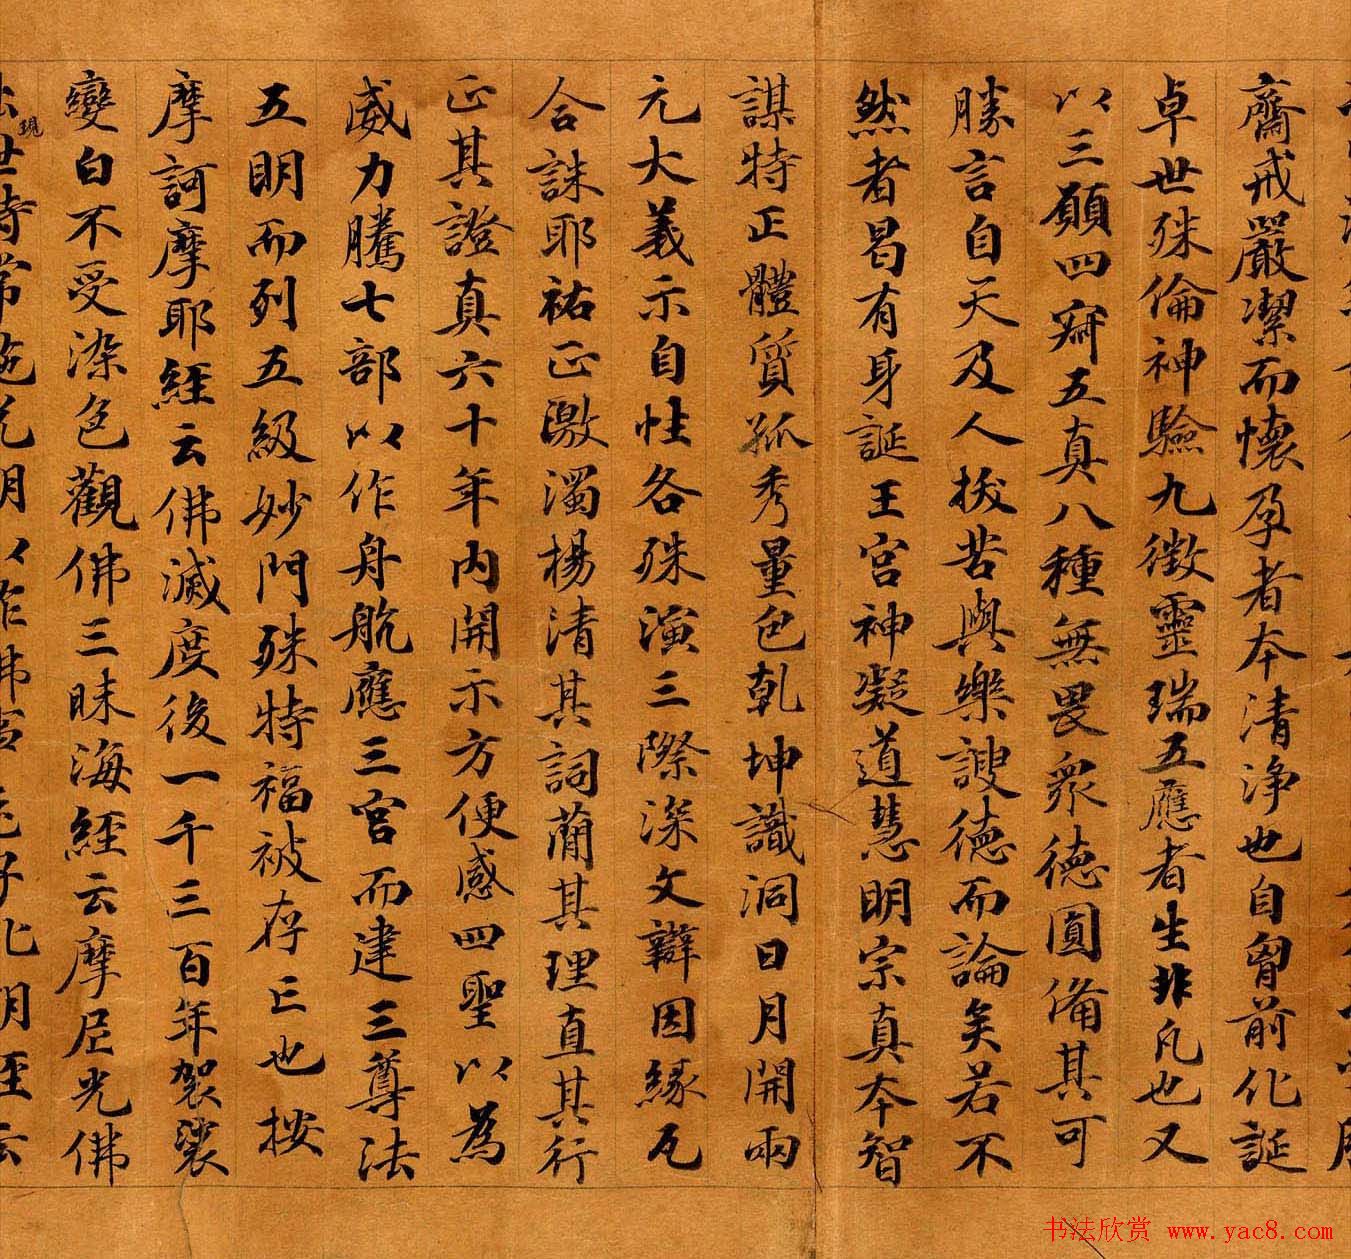 齋戒嚴潔而懷孕者本清淨也自胷前化誕
卓世殊倫神驗九徵靈瑞五應者生非凡也又
以三願四寂五真八種無畏衆德圓備其可
勝言自天及人拔苦與樂謏德而論矣若不
然者曷有身誕王宮神凝道慧明宗真本智
謀特正體質孤秀量包乾坤識洞日月開兩
元大義示自性各殊演三際深文辯因緣瓦
合誅耶祐正激濁揚清其詞蕳其理直其行
正其證真六十年內開示方便感四聖以為
威力騰七部以作舟航應三宮而建三尊法
五明而列五級妙門殊特福被存亡也按
摩訶摩耶經云佛滅度後一千三百年袈裟
變白不受染色觀佛三昧海經云摩尼光佛
出現世時常施光明以作佛事老子化胡經云
书法欣赏 www.yac8.com